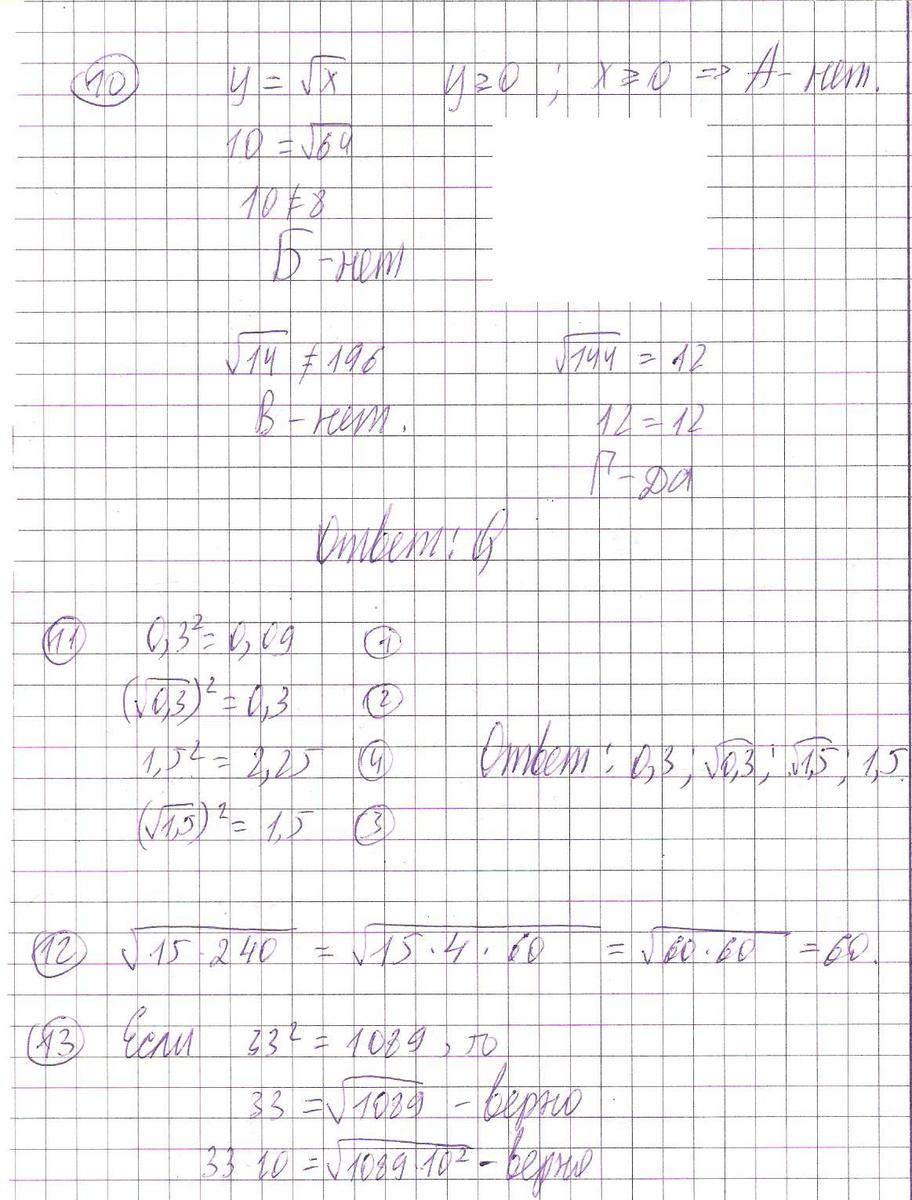 10 y = √x y ≥ 0 ; x ≥ 0 => А - нет.
10 = √64
10 ≠ 8
Б - нет
√14 ≠ 196 √144 = 12
В - нет. 12 = 12
Г - Да
Ответ:
11 0,3² = 0,09 1
(√0,3)² = 0,3 2
1,5² = 2,25 4 Ответ: 0,3 ; √0,3 ; √1,5 ; 1,5
(√1,5)² = 1,5 3
12 √15·240 = √15·4·60 = √60·60 = 60.
13 Если 33² = 1089, то
33 = √1089 - верно
33·10 = √1089·10² - верно